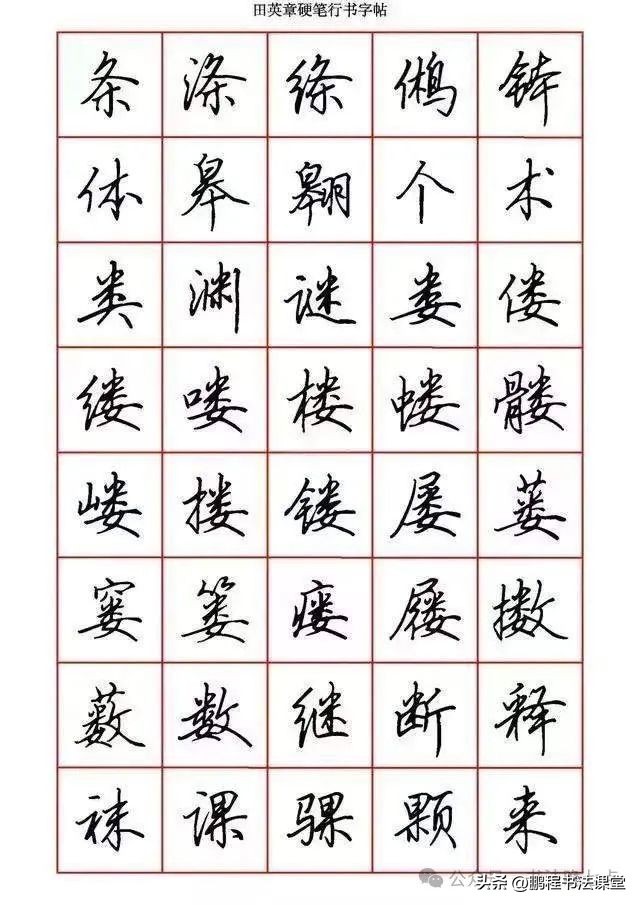 田英章硬笔行书字帖
条 涤 绦 鸺 钵
体 皋 翱 个 术
类 渊 谜 娄 偻
缕 喽 楼 蝼 髅
嵝 搂 镂 屡 蒌
窭 篓 瘘 屦 擞
薮 数 继 断 释
袜 课 骒 颗 来
公众号
头条 @鹏程书法课堂